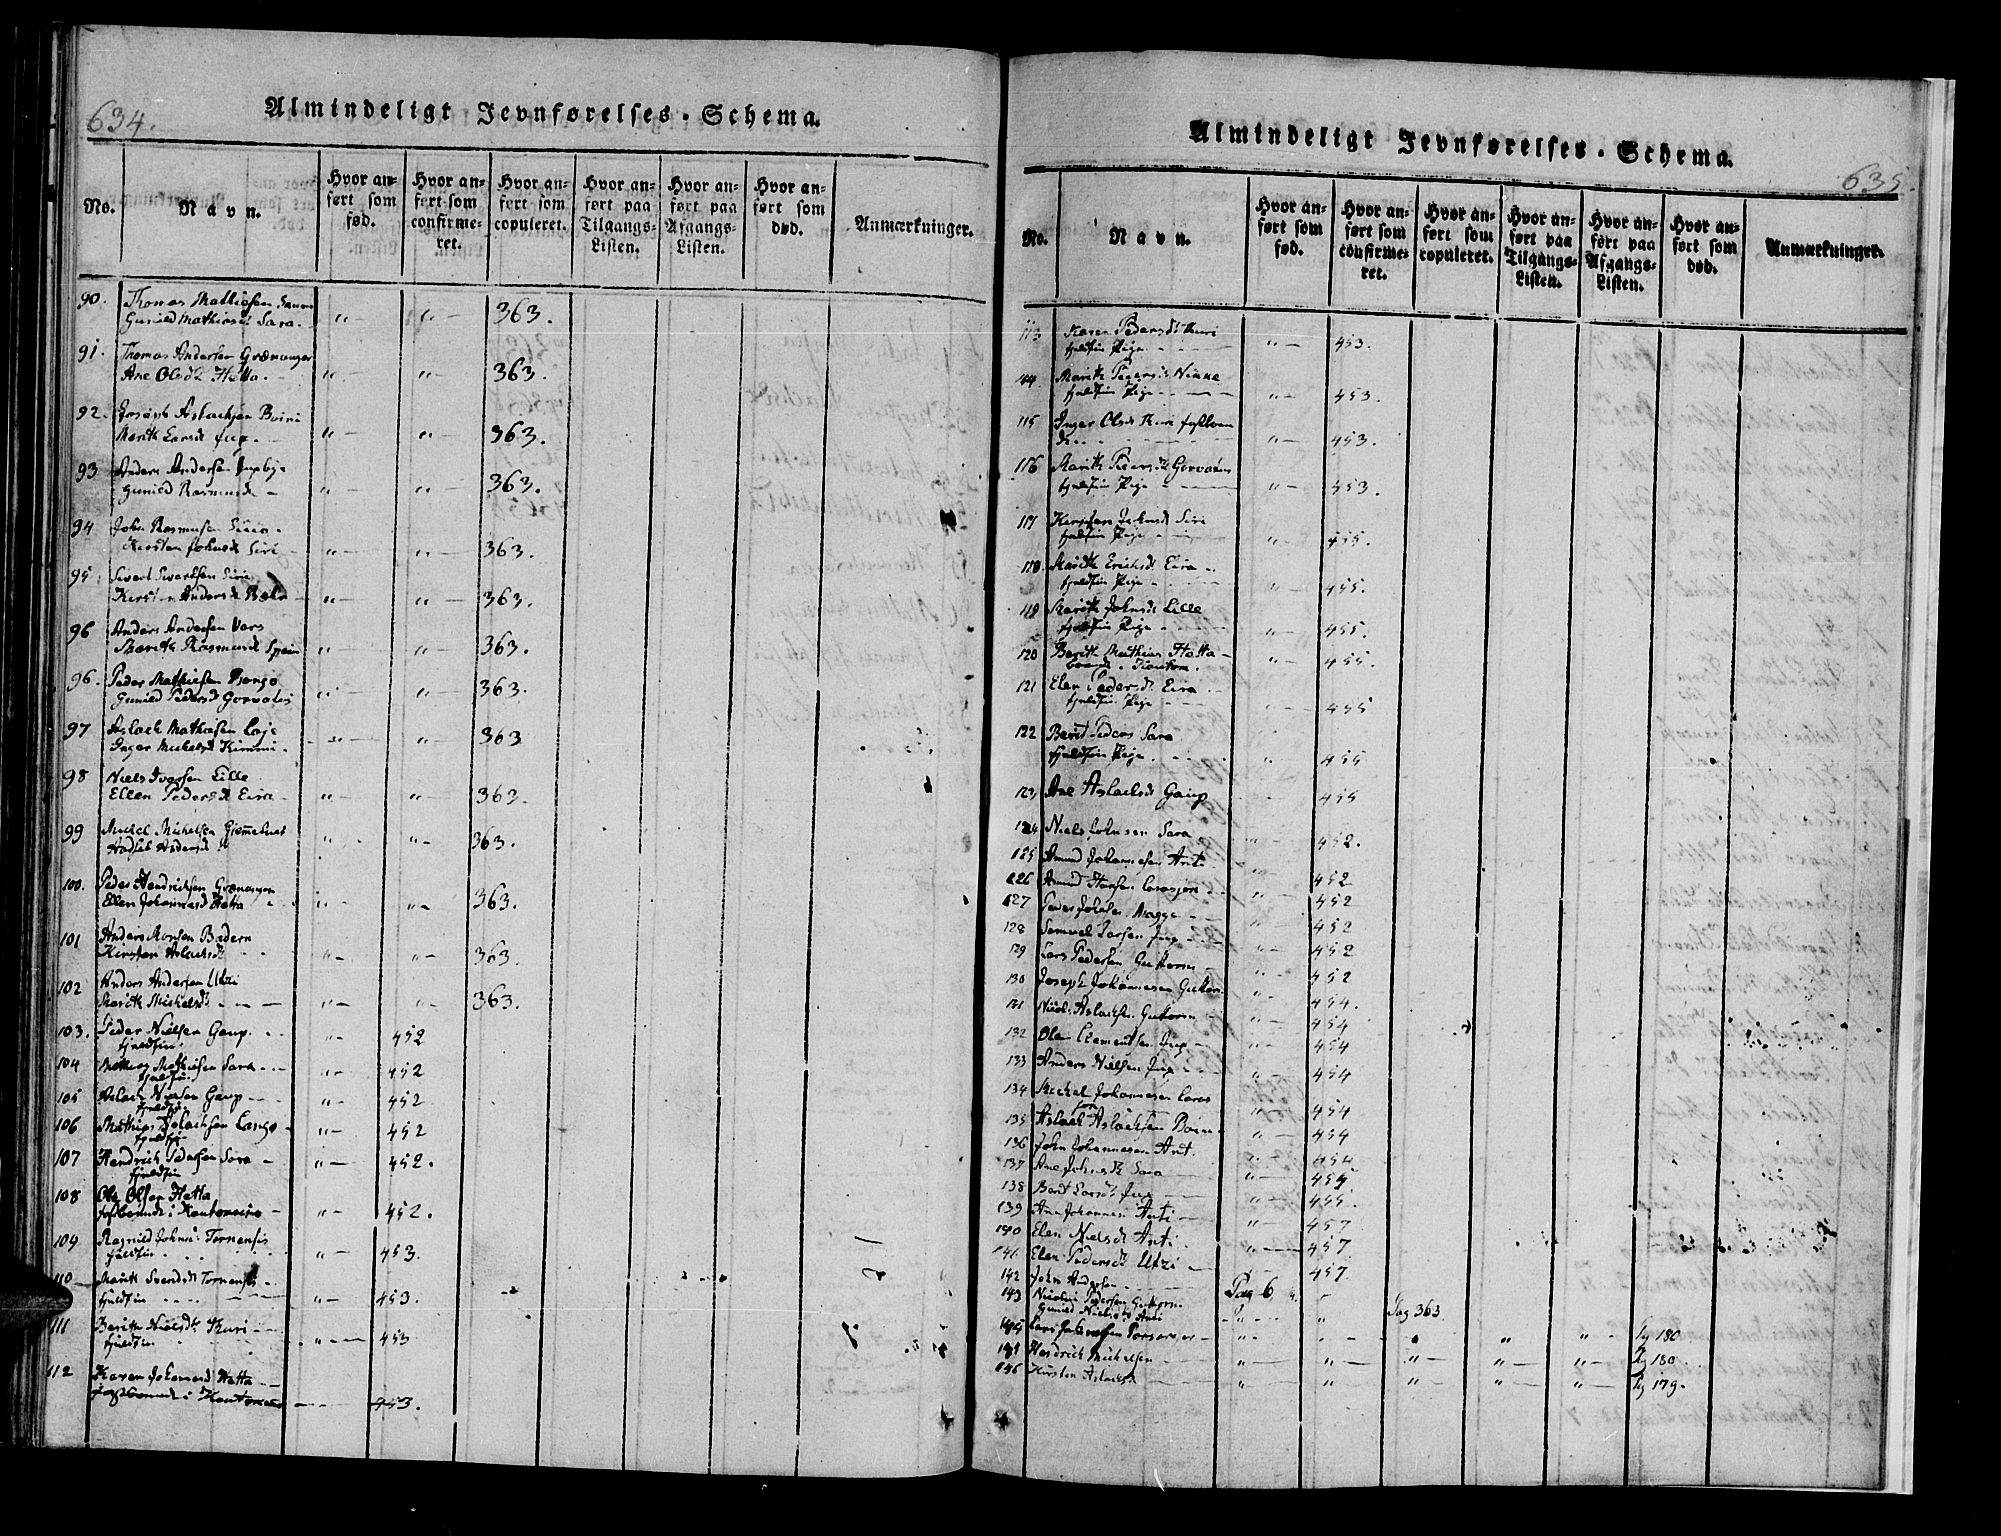 634.
Almindeligt Jevnførelses-Schema.
No.
Navn.
Hvor anført som fød.
Hvor anført som confirmeret.
Hvor anført som copuleret.
Hvor anført paa Tilgangs-Listen.
Hvor anført paa Afgangs-Listen.
Hvor anført som død.
Anmærkninger.
90. Thomas Mathiesen
Gunild Mathisd Sara. " — " — 363.
91. Thomas Andersen Grænanger
Ane Olsdt Hætta. " — " — 363.
92. Aslachsen
Marith Larsdt Jup. " — " — 363.
93 Anders Andersen
Gunild Rasmusdt — " — " — 363.
94 John Rasmusen
Kirsten Johnsd Siri " — " — 363.
95 Sivert Sivertsen Siri
Kirsten Andersdt " — " — 363.
96 Anders Andersen Vars
Marith Rasmusd Spein " — " — 363.
96. Peder Mathiesen Pongo
Gunild Pedersdt Gorvatis " — " — 363.
97 Aslach Mathiesen
Inger Michelsd Kimmi. " — " — 363
98 Niels Iversen Lille
Ellen Pedersdt Eira " — " — 363.
99 Michel Michelsen
Andersd " " — 363.
100. Peder Hendrichsen Grænanger
Elen Johannesd Hætta " — 363.
101 Anders Monsen Badern
Kirsten Aslachsdt " — " — 363.
102 Anders Andersen Utzi
Marith Michelsdt " — " — 363.
103. Peder Nielsen Gaup.
fjeldfin. " — 452
104 Mathias Mathiesen Sara
fjeldfin. " — 452
105 Aslach Nielsen Gaup
fjeldfin. " — 452
106 Mathias Aslachsen Lango
fjeldfin " — 452
107 Hendrich Pedersen Sara
fjeldfin " — 452.
108 Ole Olsen Hætta
i Kautokeino " — 452.
109 Ragnild Johnsd Tornensis
fjeldfin " — 453.
110 Marith Svendsdt Tornensis
fjeldfin " — 453.
111 Berith Nielsdt Kuri
fjeldfin " — 453
112 Karen Johannesd Hætta
i Kautokeino — 453.
Almindeligt Jevnførelses-Schema.
635.
No.
Navn.
Hvor anført som fød.
Hvor anført som confirmeret.
Hvor anført som copuleret.
Hvor anført paa Tilgangs-Listen.
Hvor anført paa Afgangs-Listen.
Hvor anført som død.
Anmærkninger.
113 Karen Pedersdt Kuri
fjeldfin Pige " — 453.
Marith Pedersdt Nikke
fjeldfin Pige " — 453.
115 Inger Olsdt Kuri
" — 453.
116 Marith Pedersdt Gorvatus
fjeldfin Pige " — 453.
117 Kirsten Johnsdt Siri
fjeldfin Pige " — 455.
118. Marith Erichsdt Eira
fjeldfin Pige " — 455.
119 Marith Johnsdt Lille
fjeldfin Pige " — 455.
120 Berith Mathisd Hætta
" — 455.
121 Elen Pedersdt Eira
fjeldfin Pige 455
122 Berit Peders Sara
fjeldfin Pige " 455
123 Ane Aslachsdt Gaup 455
124 Niels Johnsen Sara " — 452.
125 Amund Johannesen Anti " — 452
126 Amund Hansen Carasjok " — 452
127 Peder Johnsen Magge " — 452
128 Samuel Larsen Jup " — 452
129 Lars Pedersen Guttorm " — 452
130 Joseph Johannesen Guttorm " — 454.
131 Niels Aslachsen Guttorm " — 454
132 Ole Clementsen Jup " — 454
133 Anders Nielsen Jup " — 454
134 Michel Johannesen Caras " 454
135 Aslach Aslachsen " — 454
136 John Johannesen Ant. " — 454
137 Ane Johnsdt Sara " — 455
138 Berit Larsdt Jup " — 455.
139 Ane Johannesd Anti " — 457
140 Elen Nielsdt Anti " — 457
141 Elen Pedersdt Utzi — 457
142 John Andersen Pag 6. "
143 Nicolai Pedersen Guttorm
Gunild Nielsdt Anti " " Pag 363
Lars Johnsen Porsanger " — " Pg 180
Hendrich Michelsen " — " — " — " — " — Pg 180
146 Kirsten Aslachsd " " — " — " — " — Pg 179.